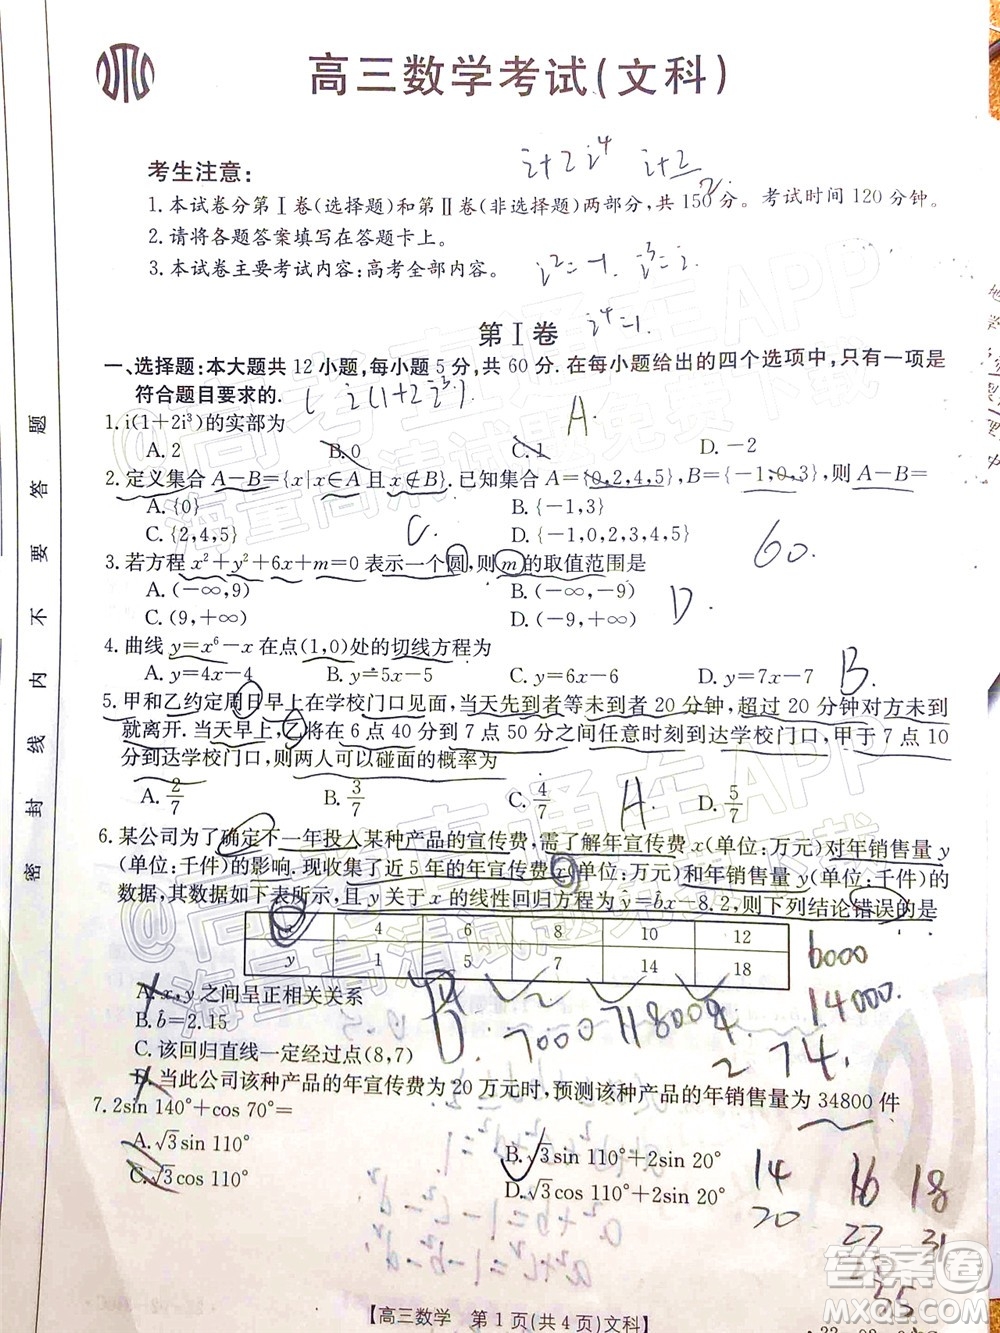 高三数学考试(文科)
i+2i⁴ i+2
考生注意:
1.本试卷分第Ⅰ卷(选择题)和第Ⅱ卷(非选择题)两部分,共150分。考试时间120分钟。
2.请将各题答案填写在答题卡上。
3.本试卷主要考试内容:高考全部内容。
i²=-1. i³=i.
第Ⅰ卷
i⁴=1.
一、选择题:本大题共12小题,每小题5分,共60分.在每小题给出的四个选项中,只有一项是
符合题目要求的.
i(1+2i³).
A.
1.i(1+2i³)的实部为
A.2 B.0 C.1 D.-2
2.定义集合A-B={x|x∈A且x∉B}.已知集合A={0,2,4,5},B={-1,0,3},则A-B=
A.{0} B.{-1,3}
C.{2,4,5} D.{-1,0,2,4,5}
C.
60.
3.若方程x²+y²+6x+m=0表示一个圆,则m的取值范围是
A.(-∞,9) B.(-∞,-9)
C.(9,+∞) D.(-9,+∞)
D.
4.曲线y=x⁶-x在点(1,0)处的切线方程为
A.y=4x-4 B.y=5x-5 C.y=6x-6 D.y=7x-7
B.
5.甲和乙约定周日早上在学校门口见面,当天先到者等未到者20分钟,超过20分钟对方未到
就离开.当天早上,乙将在6点40分到7点50分之间任意时刻到达学校门口,甲于7点10
分到达学校门口,则两人可以碰面的概率为
A.2/7 B.3/7 C.4/7 D.5/7
A.
6.某公司为了确定下一年投入某种产品的宣传费,需了解年宣传费x(单位:万元)对年销售量y
(单位:千件)的影响.现收集了近5年的年宣传费x(单位:万元)和年销售量y(单位:千件)的
数据,其数据如下表所示,且y关于x的线性回归方程为ŷ=b̂x-8.2,则下列结论错误的是
x 4 6 8 10 12
y 1 5 7 14 18
6000
14000.
A.x,y之间呈正相关关系
B.b̂=2.15
C.该回归直线一定经过点(8,7)
D.
7000
18000
274.
D.当此公司该种产品的年宣传费为20万元时,预测该种产品的年销售量为34800件
7.2sin 140°+cos 70°=
A.√3sin 110° B.√3sin 110°+2sin 20°
C.√3cos 110° D.√3cos 110°+2sin 20°
14 16 18
20 27 31
55
密封线内不要答题
【高三数学 第1页(共4页)文科】
@高考直通车APP
海量高清试题免费下载
答案圈